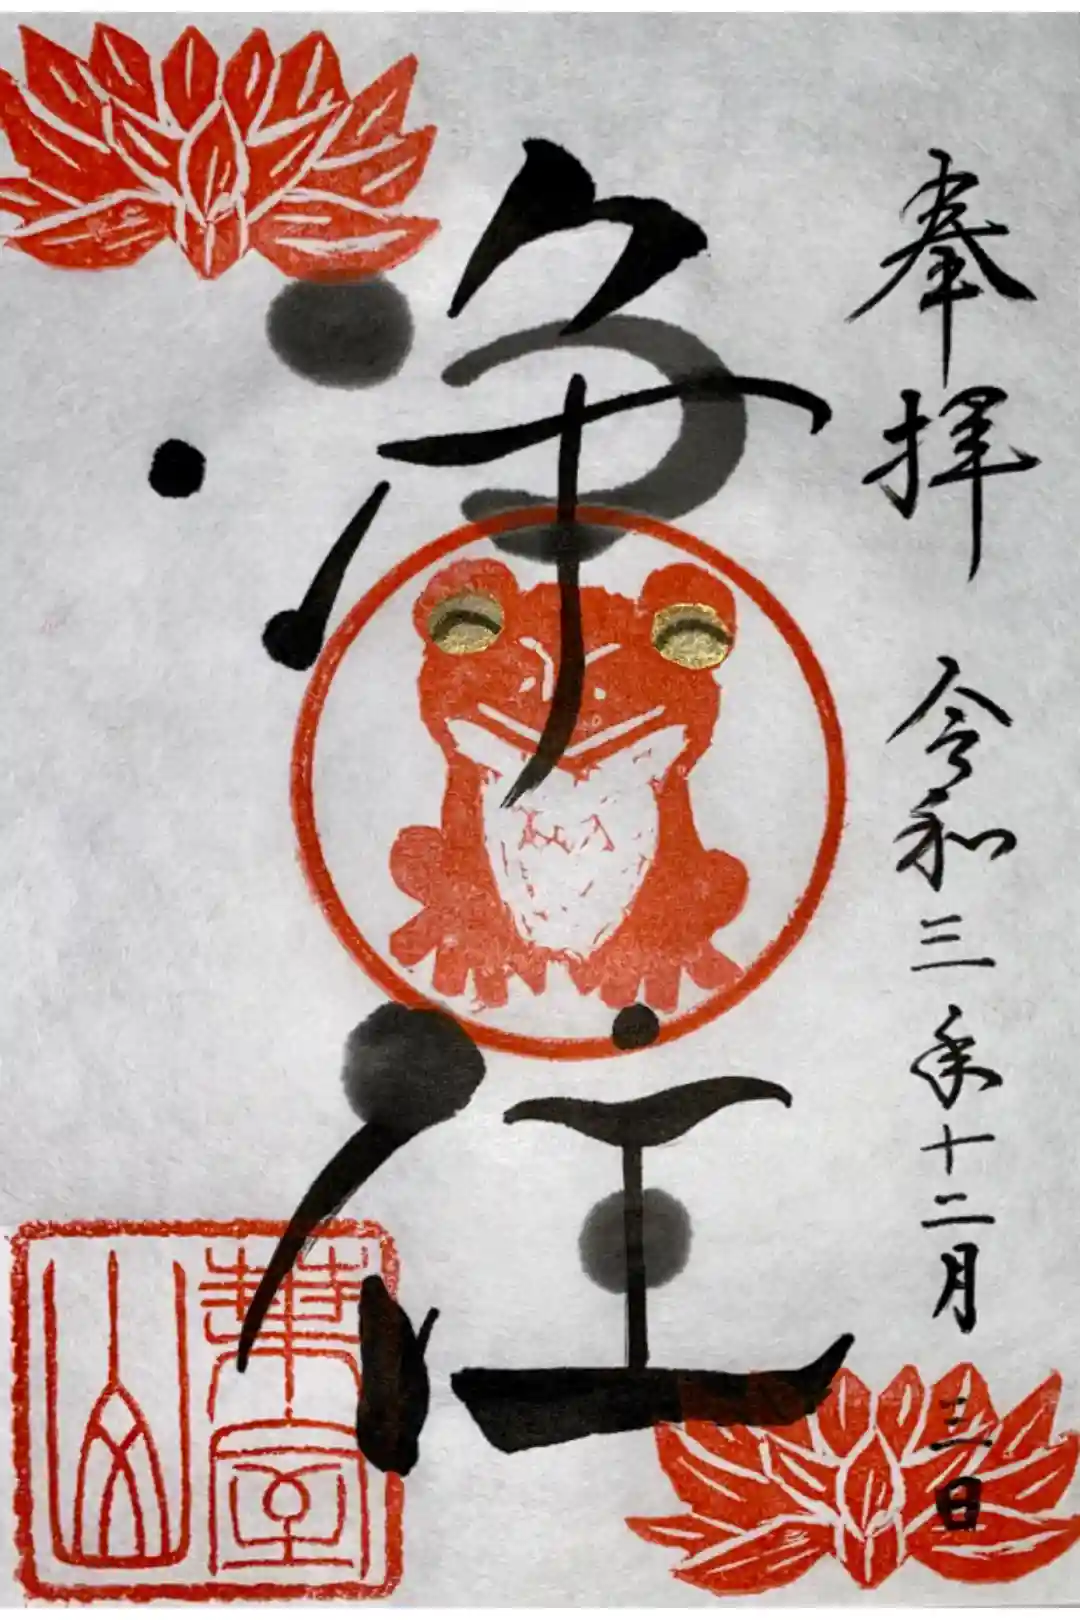 奉拝 令和三年十二月三日
浄住
葉室
山